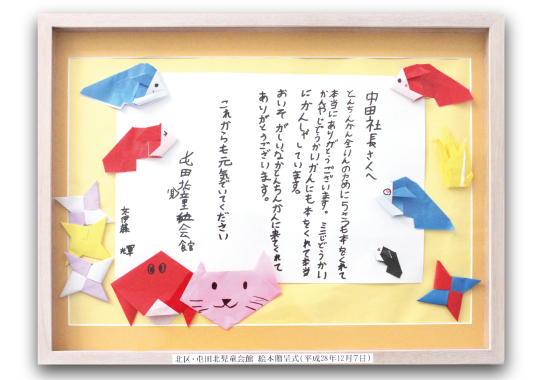 中田社長さんへ
とんちんかん全いんのために 本をくれて
本当にありがとうございます。
かんやじどうかいかんにも本をくれて本当
にかんしゃしています。
おいそがしいなかとんちんかんに来てくれて
ありがとうございます。
これからも元気でいてください
屯田北 童会館
伊藤 輝
北区・屯田北児童会館 絵本贈呈式(平成28年12月7日)